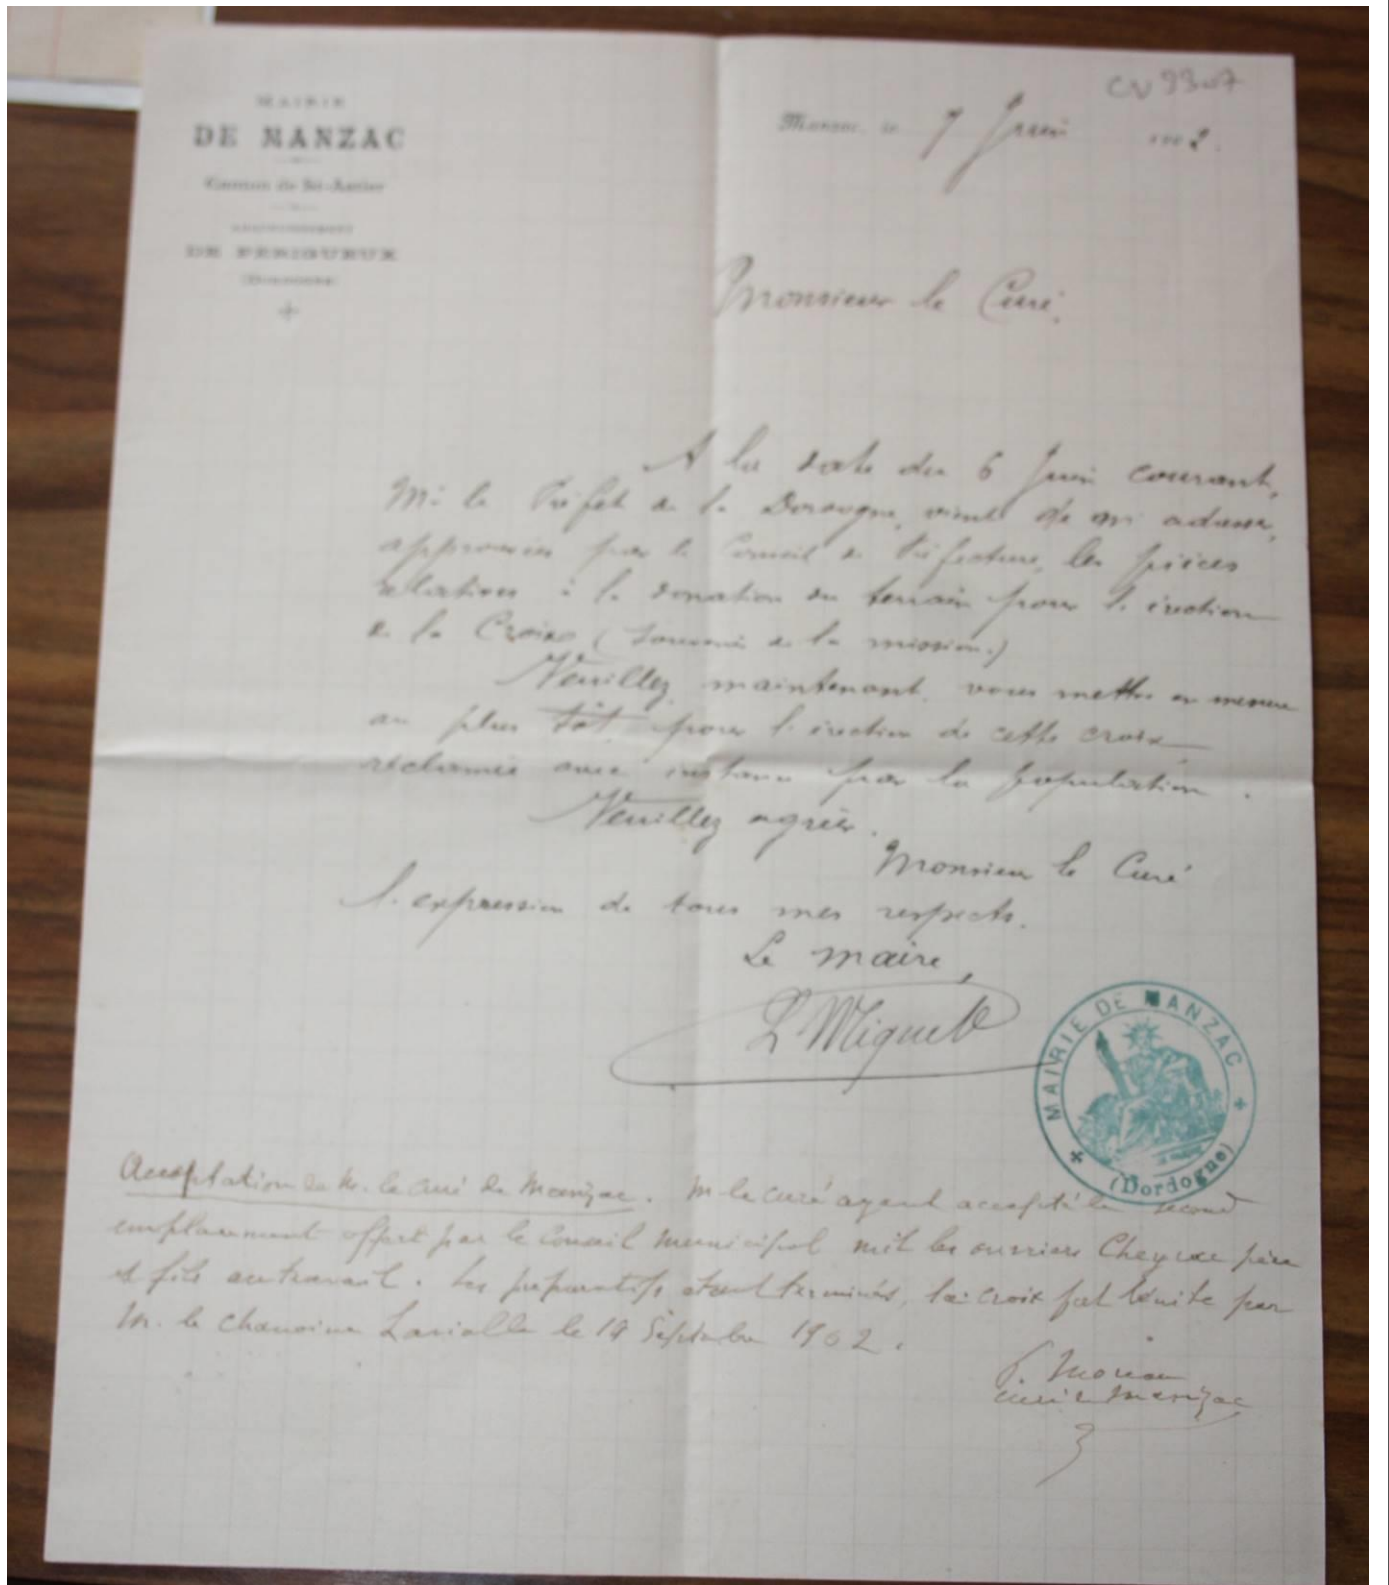 CV 9307
MAIRIE
DE MANZAC
Canton de St-Astier
ARRONDISSEMENT
DE PÉRIGUEUX
(DORDOGNE)
Manzac, le 7 Juin 1902.
Monsieur le Curé,
A la date du 6 Juin courant,
Mr le Préfet de la Dordogne, vient de m'adresser,
approuvées par le Conseil de Préfecture, les pièces
relatives à la donation du terrain pour l'érection
de la Croix (souvenir de la mission.)
Veuillez, maintenant, vous mettre en mesure
au plus tôt pour l'érection de cette croix
réclamée avec instance par la population.
Veuillez agréer,
Monsieur le Curé
l'expression de tous mes respects.
Le maire,
L Miquel
MAIRIE DE MANZAC
(Dordogne)
Acceptation de M. le curé de Manzac. M le curé ayant accepté le second
emplacement offert par le Conseil municipal mit les ouvriers Cheyrou père
et fils au travail. Les préparatifs étant terminés, la croix fut bénite par
M. le chanoine Lasialle le 14 Septembre 1902.
Moreau
curé de Manzac